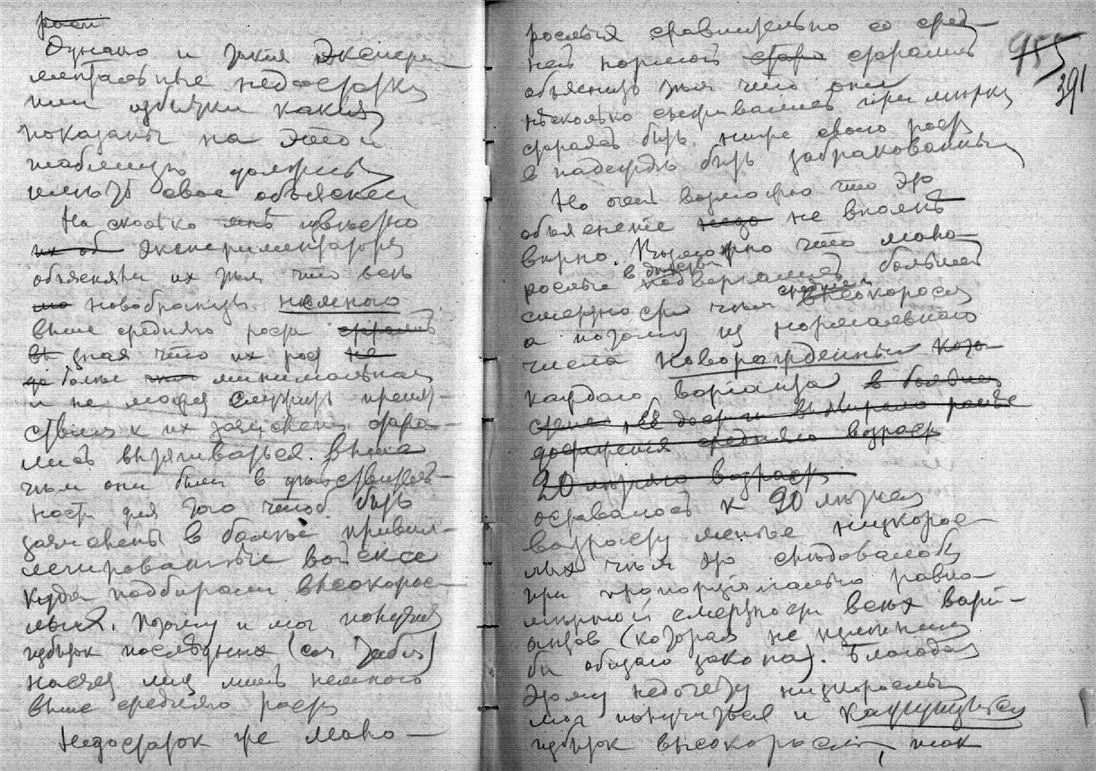 росту
Однако и такия экспери
ментальные недостатки
или избытки какия
показаны на этой
таблице должны
иметь свое объяснен
На сколько мнѣ извѣстно
их об экспериментаторы
объясняли их тѣм что всѣ
новобранцы немного
выше средняго роста
зная что их рост не
болѣе минимальнаго
и не может служить препят-
ствием к их зачислен стара-
лись вытягиваться выше
чѣм они были в действитель-
ности для того чтоб быть
зачислен в болѣе привил-
легированные войска
куда подбирали высокорос-
лых. Потому и мог получиться
избыток последних (см табл)
насчет лиц лишь немного
выше средняго роста
Недостаток же мало-
рослых сравнительно со сред-
ней нормой старались
объяснить тѣм что они
нѣсколько съеживались при мѣркѣ
стараясь быть ниже своего роста
в надеждѣ быть забракованны
Но очень возможно что это
объяснение не вполнѣ
вѣрно. Возможно что мало-
рослые в дѣтствѣ подвергались большей
смертности чѣм средние и высокорослые
а потому из нормальнаго
числа новорожденных
каждаго варианта в больших
достижения средняго возраста
20 лѣтняго возраста
оставалось к 20 лѣтнему
возрасту менѣе низкорос-
лых чѣм это слѣдовало бы
при пропорционально равно-
мѣрной смертности всѣх вари-
антов (которая не измѣнила
бы общаго закона). Благодаря
этому недочету низкорослых
мог получиться и кажущийся
избыток высокорослых, так
955
391